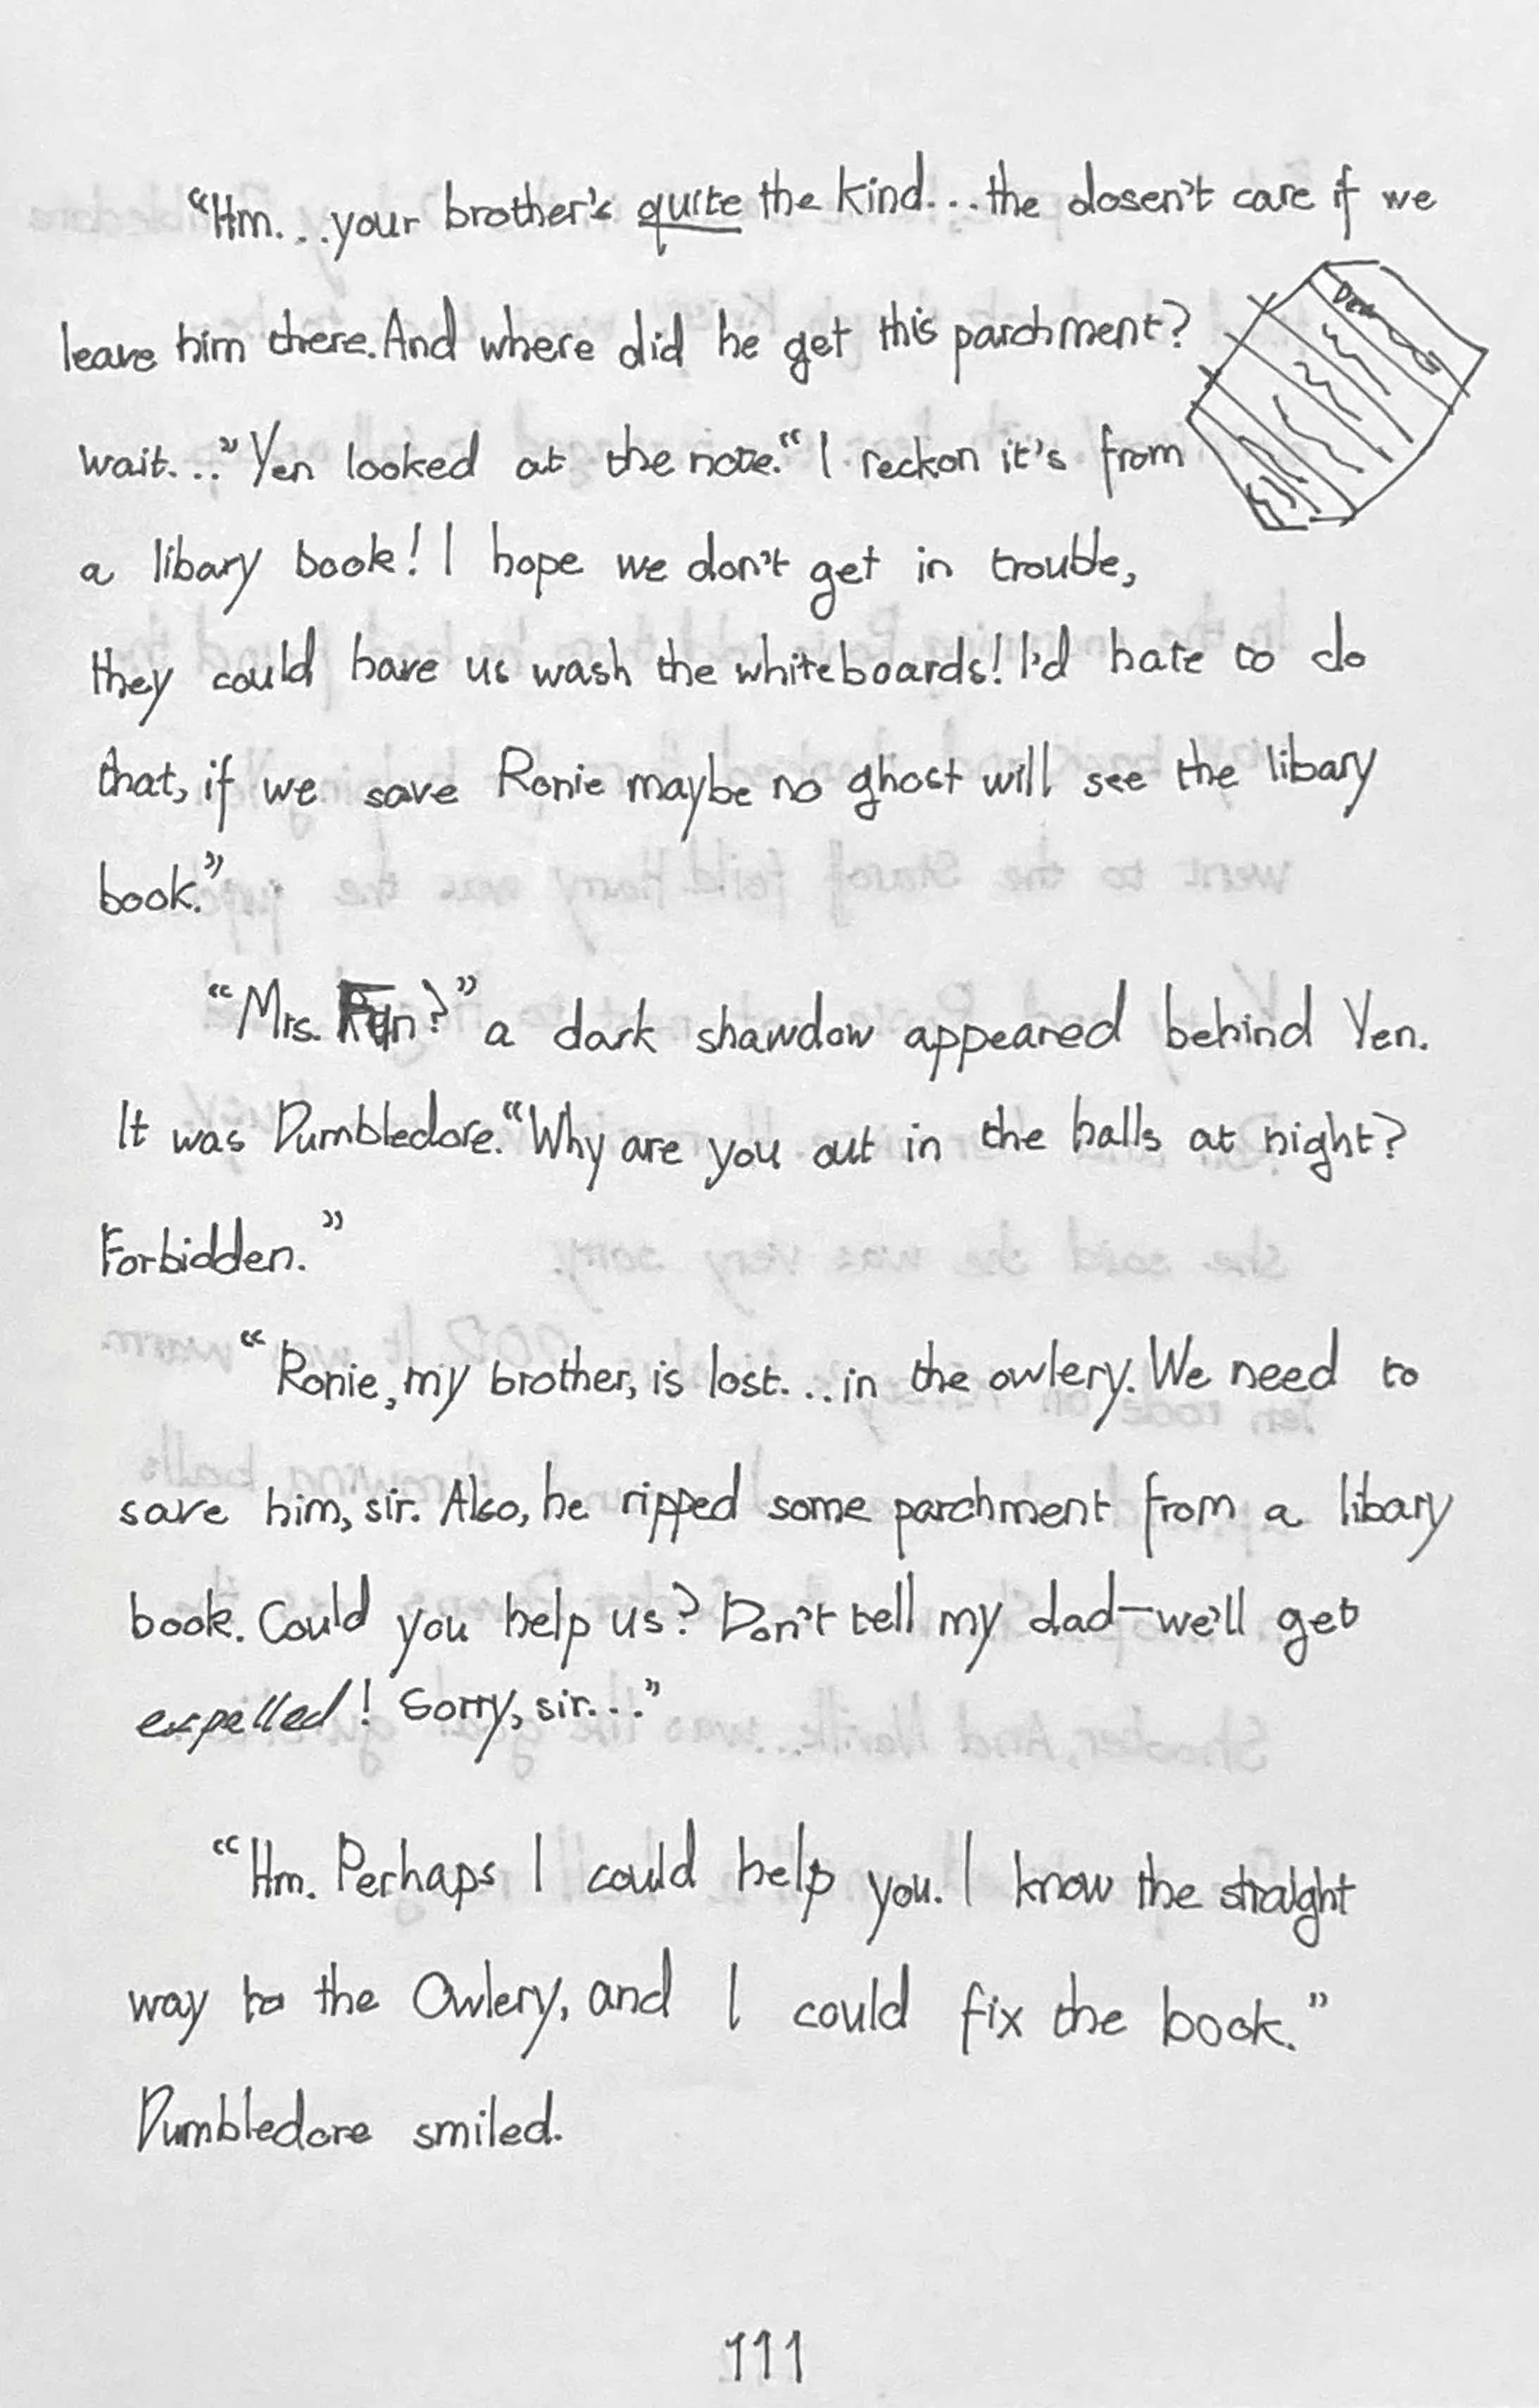 “Hm...your brother's quite the kind...the dosen't care if we
leave him there. And where did he get this parchment?
Dea
wait...” Yen looked at the note. “I reckon it's from
a libary book! I hope we don't get in trouble,
they could have us wash the whiteboards! I'd hate to do
that, if we save Ronie maybe no ghost will see the libary
book.”
“Mrs. ?” a dark shawdow appeared behind Yen.
It was Dumbledore. “Why are you out in the halls at night?
Forbidden.”
“Ronie, my brother, is lost...in the owlery. We need to
save him, sir. Also, he ripped some parchment from a libary
book. Could you help us? Don't tell my dad—we'll get
expelled! Sorry, sir...”
“Hm. Perhaps I could help you. I know the straight
way to the Owlery, and I could fix the book.”
Dumbledore smiled.
111